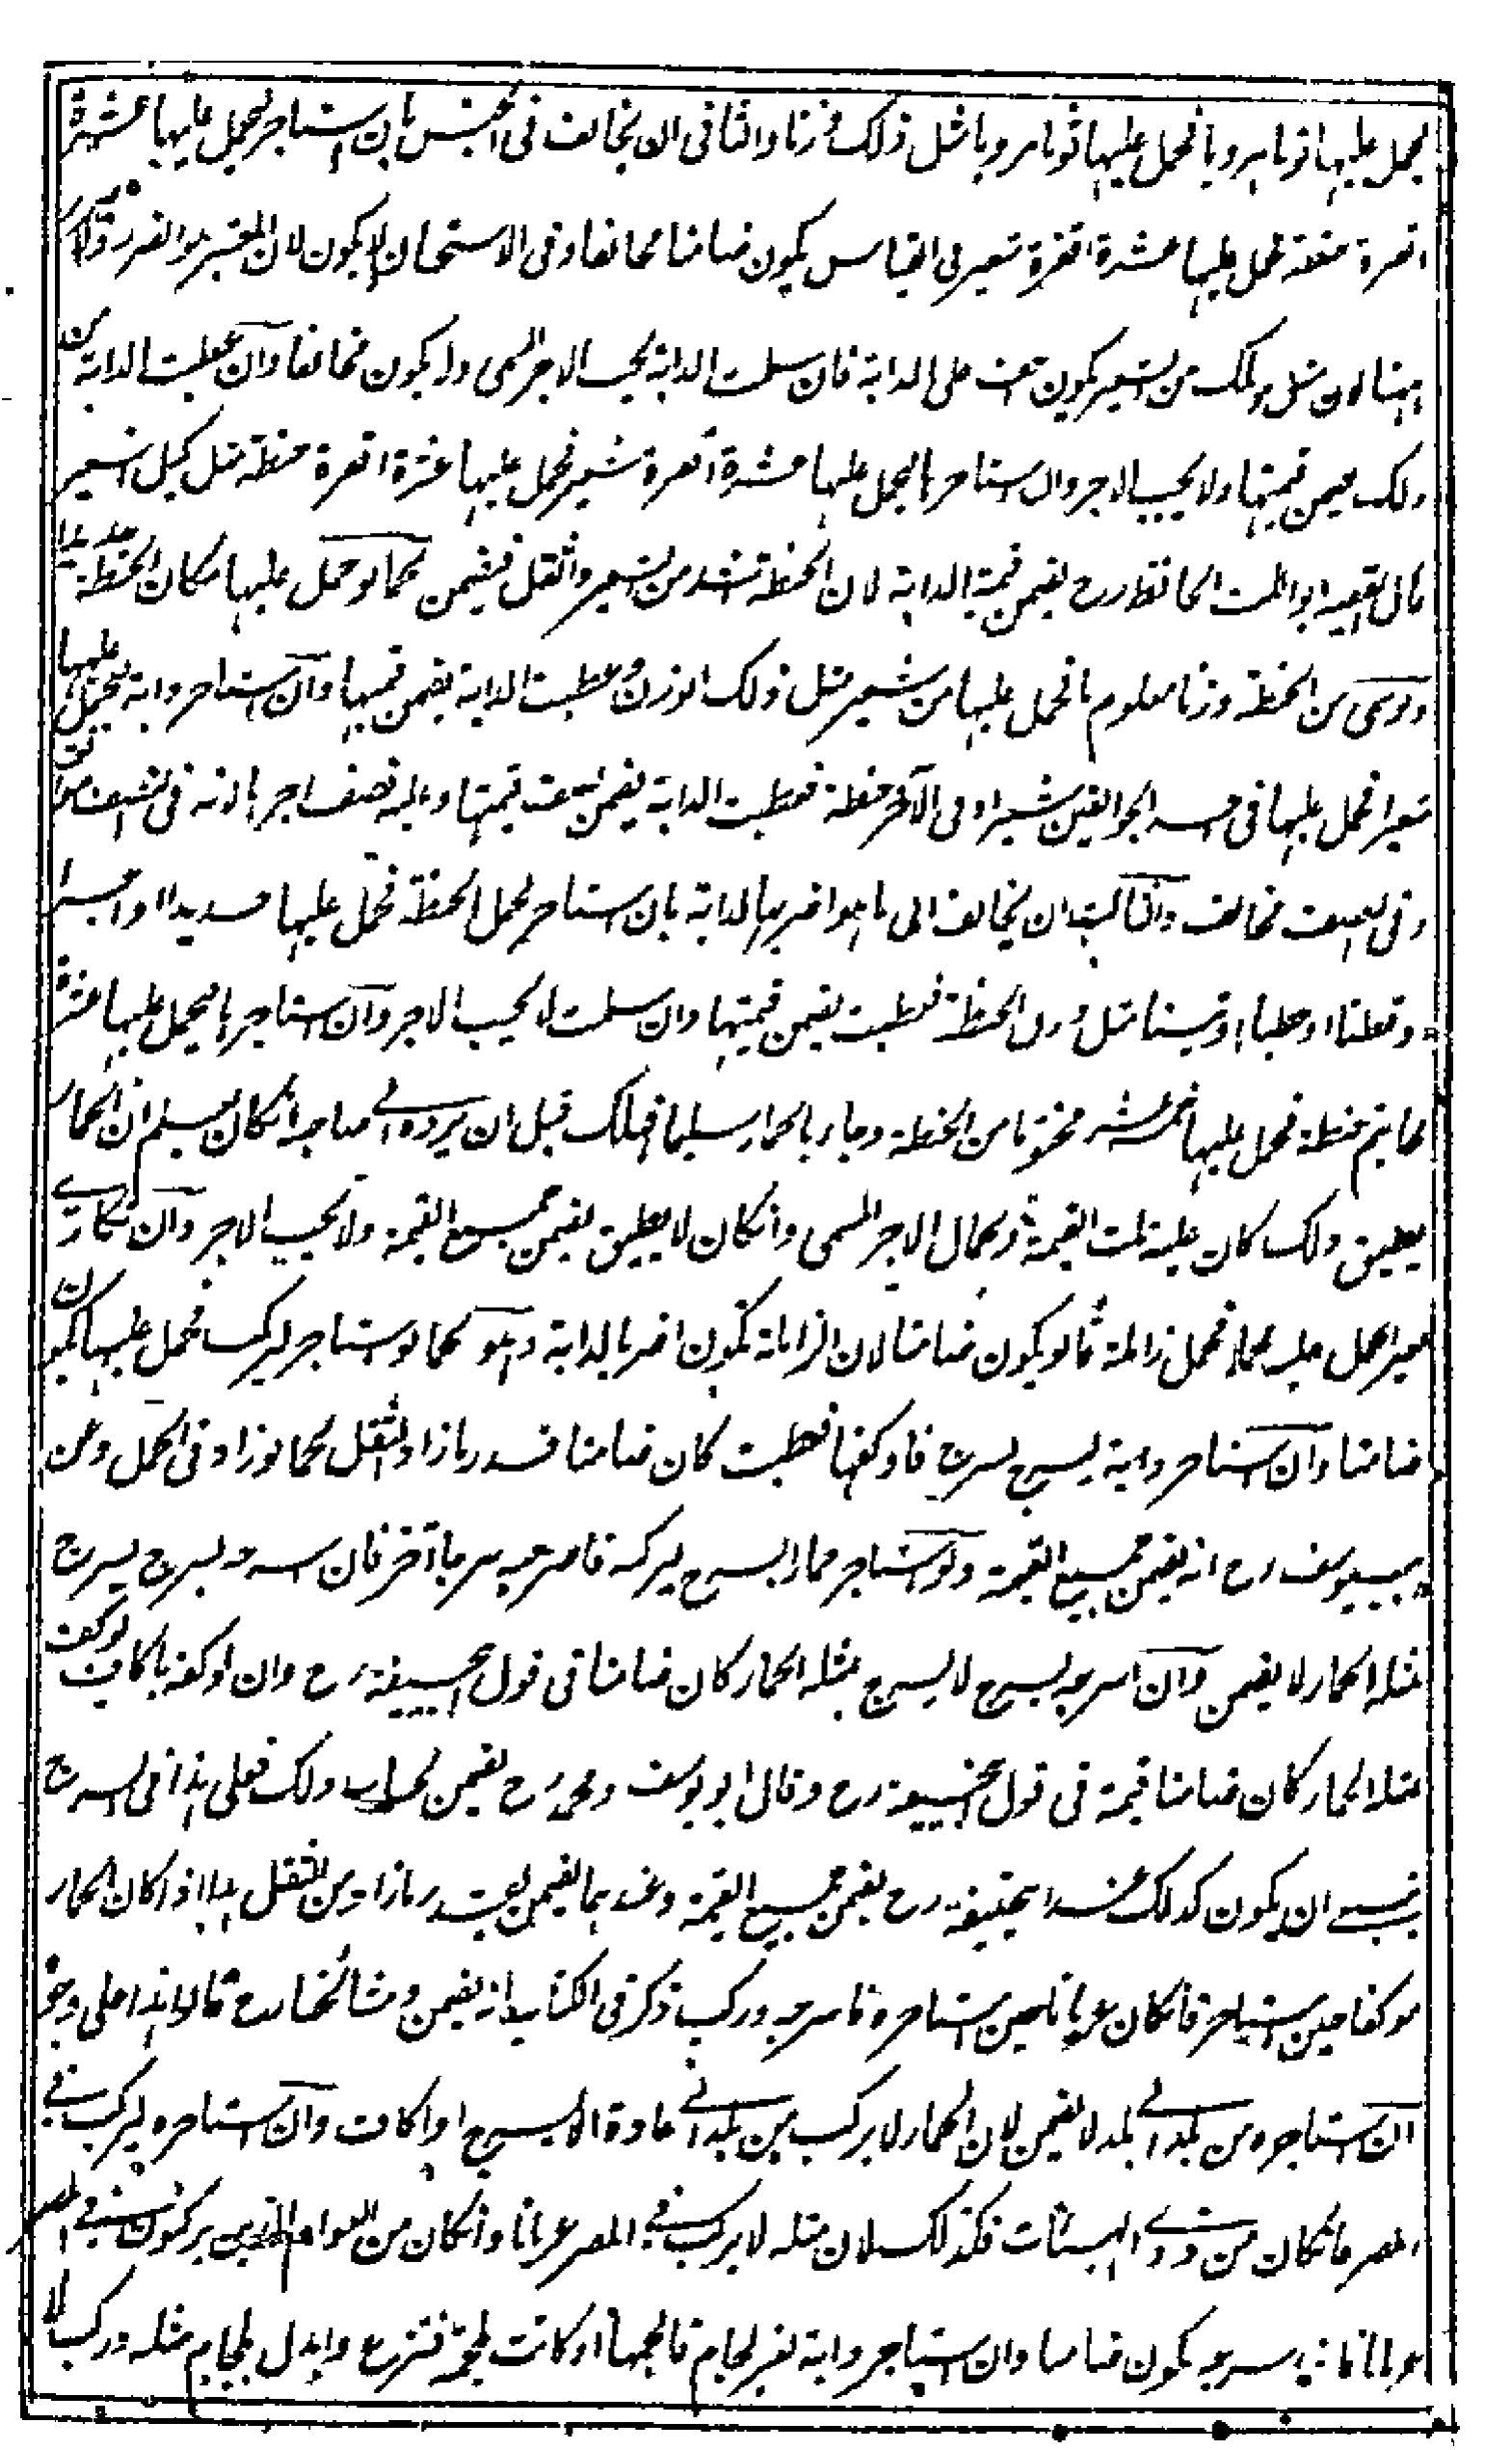 ليحمل عليها ثوبا هرويا فحمل عليها ثوبا مرويا مثل ذلك وزنا والثاني ان يخالف في الجنس بان استاجر ليحمل عليها عشرة
اقفزة حنطة فحمل عليها عشرة اقفزة شعير في القياس يكون ضامنا مخالفا وفي الاستحسان لا يكون لان المعتبر هو الضرر ولا ضرر
ههنا لان مثل ذلك من الشعير يكون اخف على الدابة فان سلمت الدابة يجب الاجر المسمى ولا يكون مخالفا وان عطبت الدابة من
ذلك يضمن قيمتها ولا يجب الاجر وان استاجرها ليحمل عليها عشرة اقفزة شعير فحمل عليها عشرة اقفزة حنطة مثل كيل الشعير
قال الفقيه ابو الليث الحافظ رح يضمن قيمة الدابة لان الحنطة اشد من الشعير واثقل فيضمن كما لو حمل عليها مكان الحنطة حديدا
ولو سمى من الحنطة وزنا معلوما فحمل عليها من شعير مثل ذلك الوزن وعطبت الدابة يضمن قيمتها وان استاجر دابة ليحمل عليها
شعيرا فحمل عليها في احد الجوالقين شعيرا وفي الآخر حنطة فعطبت الدابة يضمن نصف قيمتها وعليه نصف اجر لانه في النصف موافق
وفي النصف مخالف والثالث ان يخالف الى ما هو اضر بالدابة بان استاجر ليحمل الحنطة فحمل عليها حديدا او آجرا
وقطنا او حطبا او تبنا مثل وزن الحنطة فعطبت يضمن قيمتها وان سلمت لا يجب الاجر وان استاجرها ليحمل عليها عشرة
مخاتيم حنطة فحمل عليها خمسة عشر مختوما من الحنطة وجاء بالحمار سليما فهلك قبل ان يرده الى صاحبه ان كان يعلم ان الحمار
يطيق ذلك كان عليه ثلث القيمة وكمال الاجر المسمى وان كان لا يطيق يضمن جميع القيمة ولا يجب الاجر وان تكارى
بعيرا لحمل عليه محملا فحمل زاملة قالوا يكون ضامنا لان الزاملة تكون اضر بالدابة وهو كما لو استاجر ليركب فحمل عليها يكون
ضامنا وان استاجر دابة بسرج ليسرج فاوكفها فعطبت كان ضامنا قدر ما زاد الثقل كما لو زاد في الحمل وعن
ابي يوسف رح انه يضمن جميع القيمة ولو استاجر حمارا بسرج ليركبه فاسرجه سرجا آخر فان اسرجه بسرج يسرج
بمثله الحمار لا يضمن وان اسرجه بسرج لا يسرج بمثله الحمار كان ضامنا في قول ابي حنيفة رح وان اوكفه باكاف يوكف
بمثله الحمار كان ضامنا قيمة في قول ابي حنيفة رح وقال ابو يوسف ومحمد رح يضمن بحساب ذلك فعلى هذا في السرج
ينبغي ان يكون كذلك عند ابي حنيفة رح يضمن جميع القيمة وعندهما يضمن بقدر ما زاد من الثقل هذا اذا كان الحمار
موكفا حين استاجر فان كان عريانا حين استاجره فاسرجه وركب ذكر في الكتاب انه يضمن ومشائخنا رح قالوا هذا على وجوه
ان استاجره من بلد الى بلد لا يضمن لان الحمار لا يركب من بلد الى عادة الا بسرج او اكاف وان استاجره ليركب في
المصر فان كان من ذوي الهيئات فكذلك لان مثله لا يركب في المصر عريانا وان كان من العوام الذين يركبون في المصر
عريانا فاسرجه يكون ضامنا وان استاجر دابة بغير لجام فالجمها او كانت ملجمة فنزع وابدل بلجام مثله وركب لا